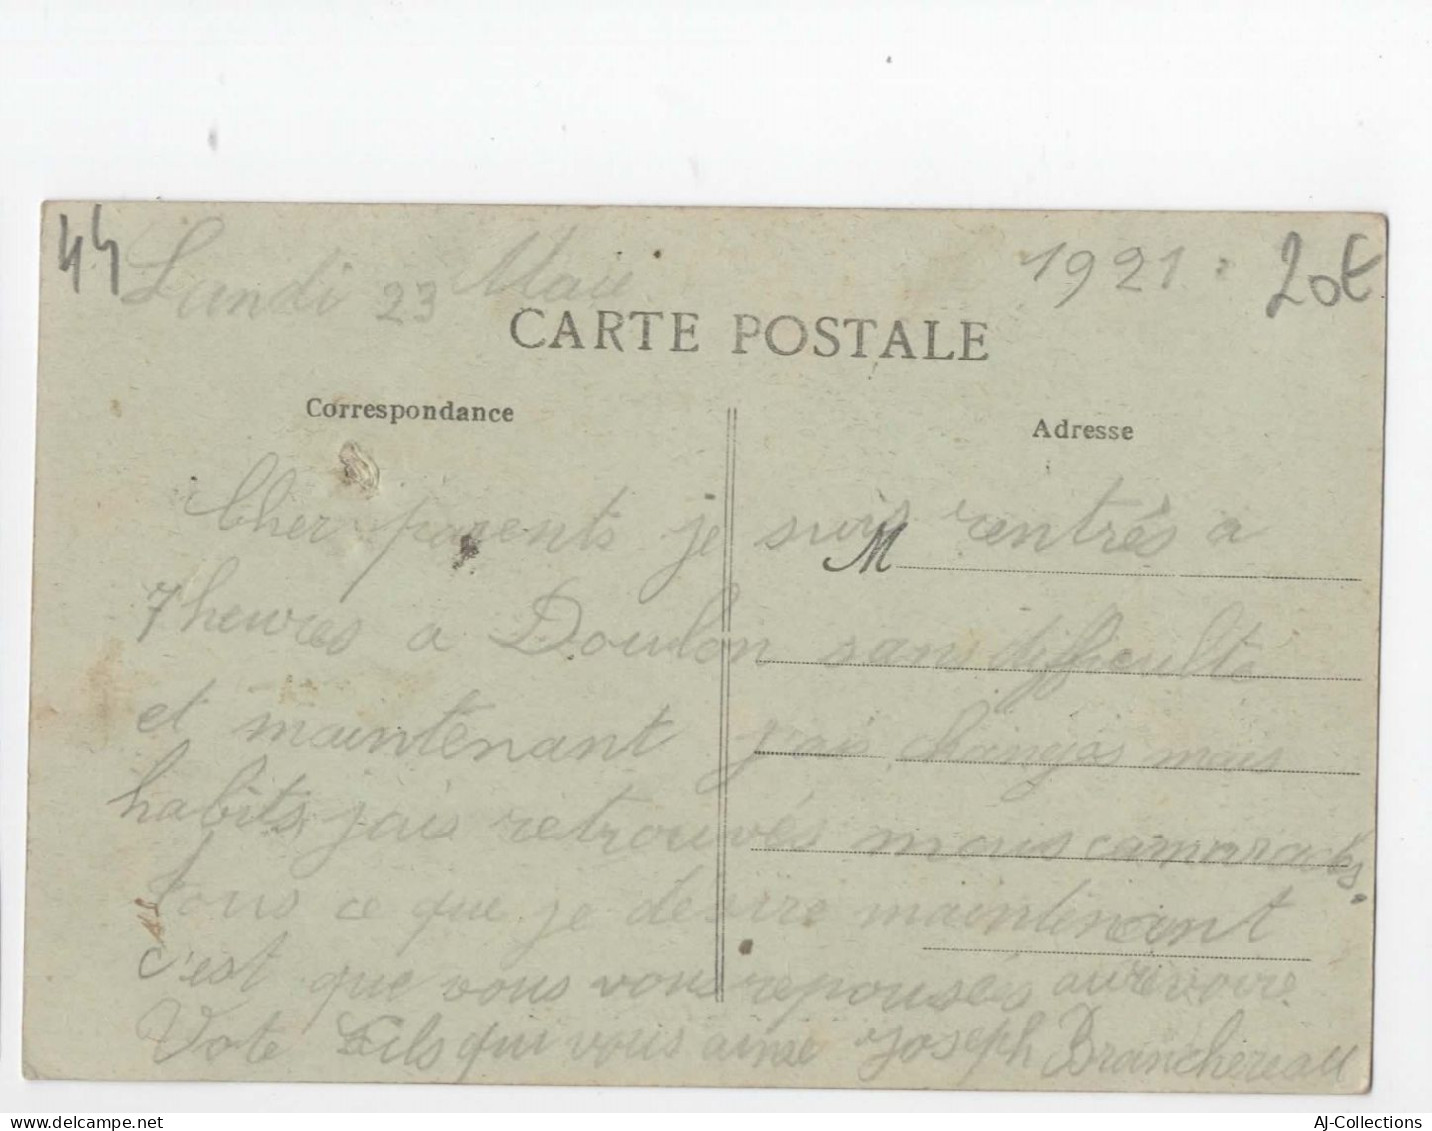 44 Lundi 23 Maie 1921. 20€
CARTE POSTALE
Correspondance
Adresse
Cher parents je suis rentrés a
M
7 heures a Doulon san difficulté
et maintenant j'ais changés mais
habits jais retrouvés mous camarades.
tous ce que je desire maintenant
c'est que vous vous repousés aurevoire
Vote Fils qui vous aime Joseph Branchereau
AJ-Collections